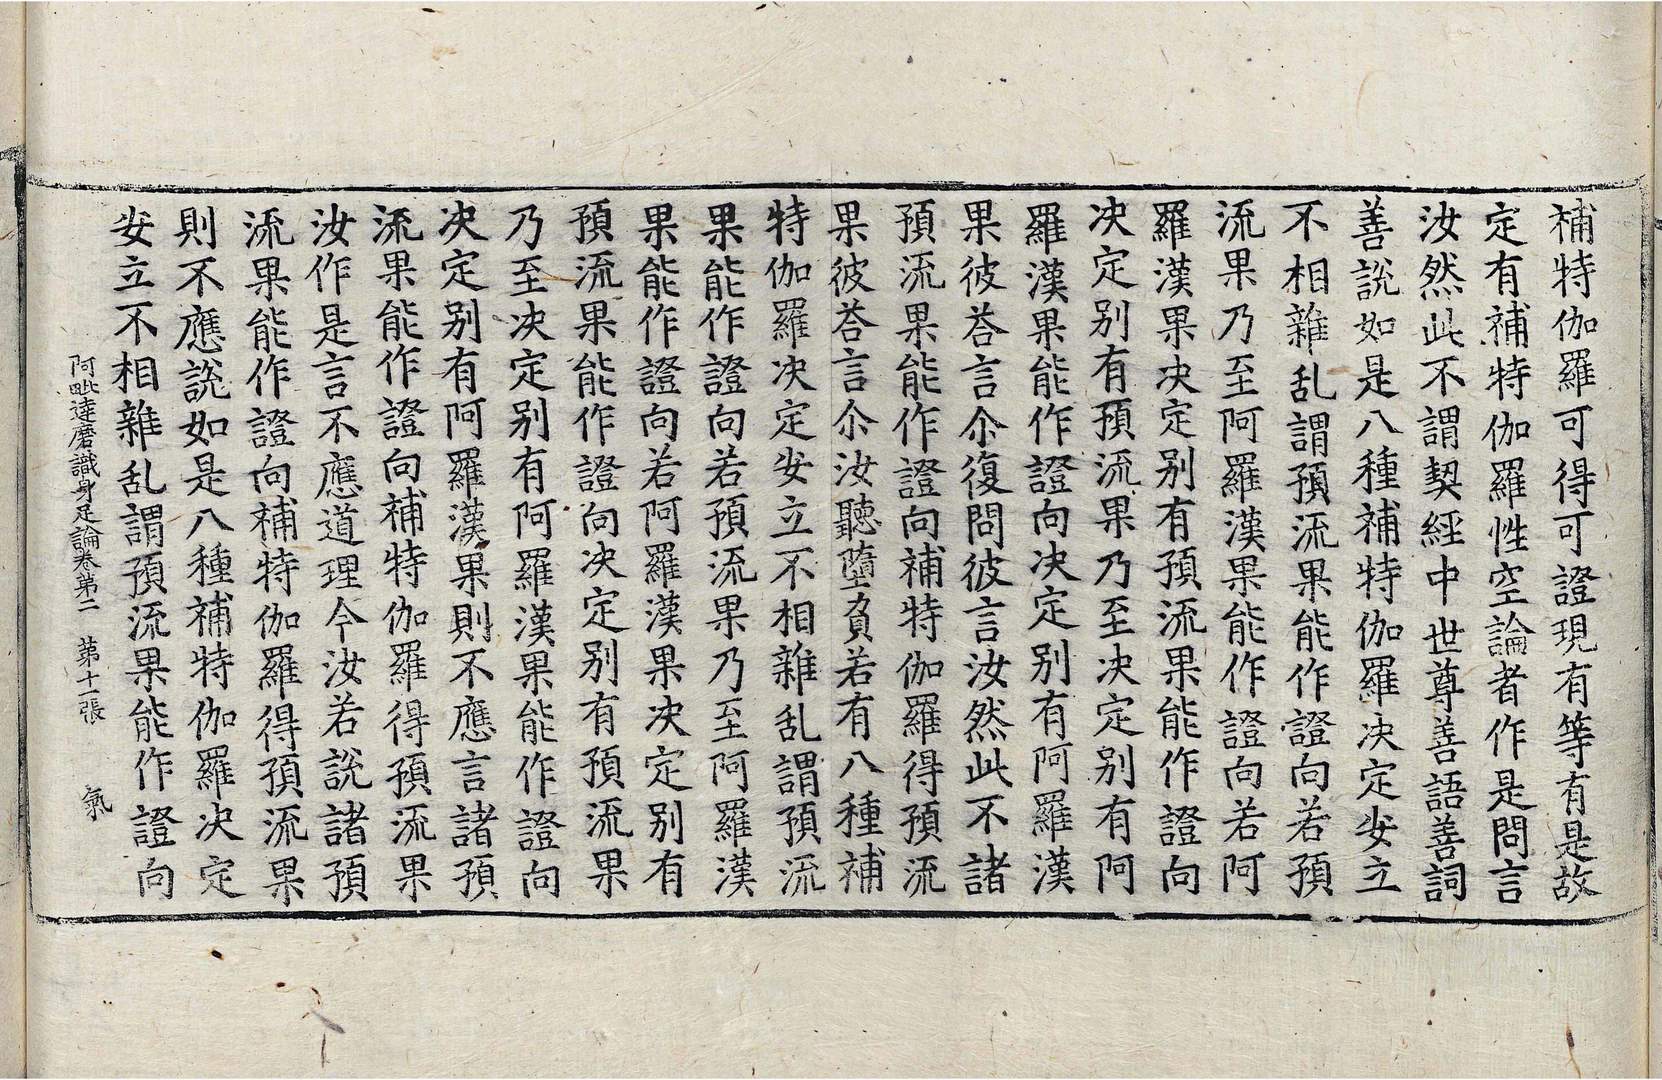 補特伽羅可得可證現有等有是故
定有補特伽羅性空論者作是問言
汝然此不謂契經中世尊善語善詞
善說如是八種補特伽羅决定安立
不相雜乱謂預流果能作證向若預
流果乃至阿羅漢果能作證向若阿
羅漢果决定别有預流果能作證向
决定别有預流果乃至决定别有阿
羅漢果能作證向决定别有阿羅漢
果彼荅言尒復問彼言汝然此不諸
預流果能作證向補特伽羅得預流
果彼荅言尒汝聽墮負若有八種補
特伽羅决定安立不相雜乱謂預流
果能作證向若預流果乃至阿羅漢
果能作證向若阿羅漢果决定别有
預流果能作證向决定别有預流果
乃至决定别有阿羅漢果能作證向
决定别有阿羅漢果則不應言諸預
流果能作證向補特伽羅得預流果
汝作是言不應道理今汝若說諸預
流果能作證向補特伽羅得預流果
則不應說如是八種補特伽羅决定
安立不相雜乱謂預流果能作證向
阿毗達磨識身足論卷第二 第十一張 氣